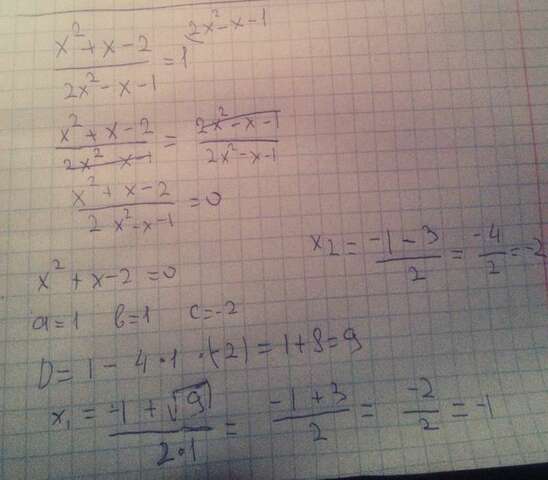 (x² + x - 2)/(2x² - x - 1) = 1 2x² - x - 1
(x² + x - 2)/(2x² - x - 1) = (2x² - x - 1)/(2x² - x - 1)
(x² + x - 2)/(2x² - x - 1) = 0
x² + x - 2 = 0
a = 1 b = 1 c = -2
D = 1 - 4·1·(-2) = 1 + 8 = 9
x₁ = (-1 + √9)/(2·1) = (-1 + 3)/2 = (-2)/2 = -1
x₂ = (-1 - 3)/2 = (-4)/2 = -2